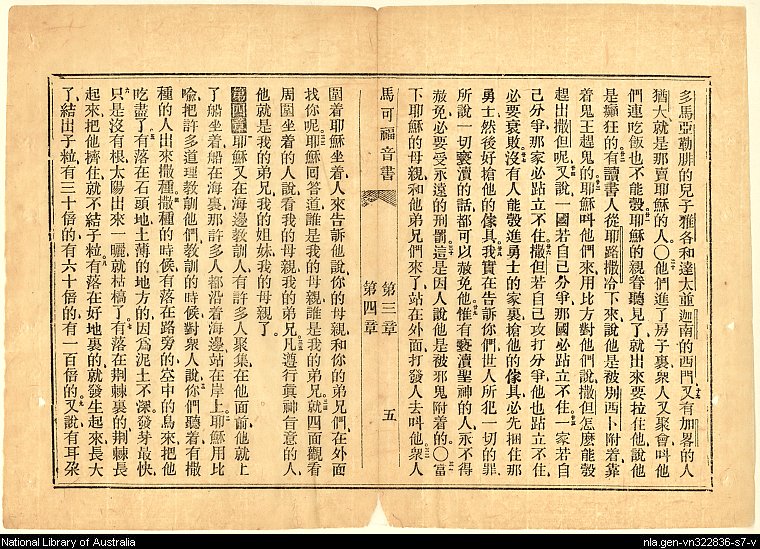 多馬亞勒腓的兒子雅各和達太並迦南的西門又有加畧的人
猶大就是那賣耶穌的人〇他們進了房子裏眾人又聚會呌他
們連吃飯也不能彀耶穌的親眷聽見了就出來要拉住他說他
是癲狂的有讀書人從耶路撒冷下來說他是被别西卜附着靠
着鬼王趕鬼的耶穌呌他們來用比方對他們說撒但怎麼能彀
趕出撒但呢又說一國若自己分爭那國必跕立不住一家若自
己分爭那家必跕立不住撒但若自己攻打分爭他也跕立不住
必要衰敗沒有人能彀進勇士的家裏搶他的傢具必先捆住那
勇士然後好搶他的傢具我實在告訴你們世人所犯一切的罪
所說一切褻瀆的話都可以赦免他惟有褻瀆聖神的人永不得
赦免必要受永遠的刑罰這是因人說他是被邪鬼附着的〇當
下耶穌的母親和他弟兄們來了站在外面打發人去呌他眾人
馬可福音書
第三章
第四章
五
圍着耶穌坐着人來告訴他說你的母親和你的弟兄們在外面
找你呢耶穌回答道誰是我的母親誰是我的弟兄就四面觀看
周圍坐着的人說看我的母親我的弟兄凡遵行眞神旨意的人
他就是我的弟兄我的姐妹我的母親了
第四章耶穌又在海邊教訓人有許多人聚集在他面前他就上
了船坐着船在海裏那許多人都沿着海邊站在岸上耶穌用比
喻把許多道理教訓他們教訓的時候對眾人說你們聽着有撒
種的人出來撒種撒種的時候有落在路旁的空中的鳥來把他
吃盡了有落在石頭地土薄的地方的因爲泥土不深發芽最快
只是沒有根太陽出來一曬就枯槁了有落在荆棘裏的荆棘長
起來把他擠住就不結子粒有落在好地裏的就發生起來長大
了結出子粒有三十倍的有六十倍的有一百倍的又說有耳朶
National Library of Australia
nla.gen-vn322836-s7-v